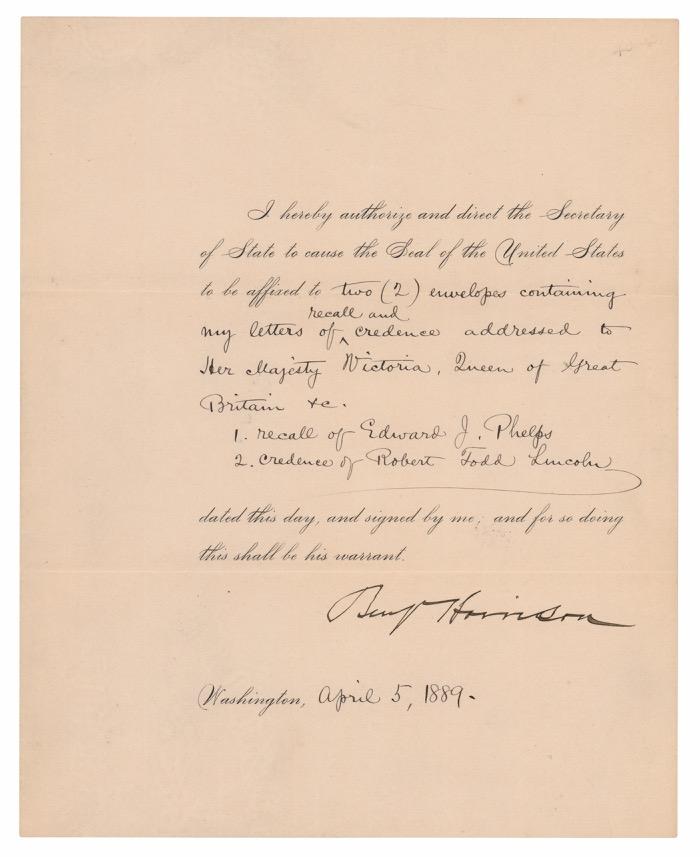 I hereby authorize and direct the Secretary
of State to cause the Seal of the United States
to be affixed to two (2) envelopes containing
recall and
my letters of ^ credence addressed to
Her Majesty Victoria, Queen of Great
Britain &c.
1. recall of Edward J. Phelps
2. credence of Robert Todd Lincoln
dated this day, and signed by me; and for so doing
this shall be his warrant.
Benj Harrison
Washington, April 5, 1889.